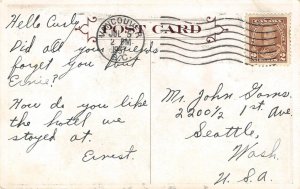 Hello Curly
POST CARD
VANCOUVER
B.C.
Did all your friends
forget you but
Ernie?
How do you like
the hotel we
stayed at.
Ernest.
Mr. John
2200½ 1st Ave.
Seattle,
Wash.
U.S.A.